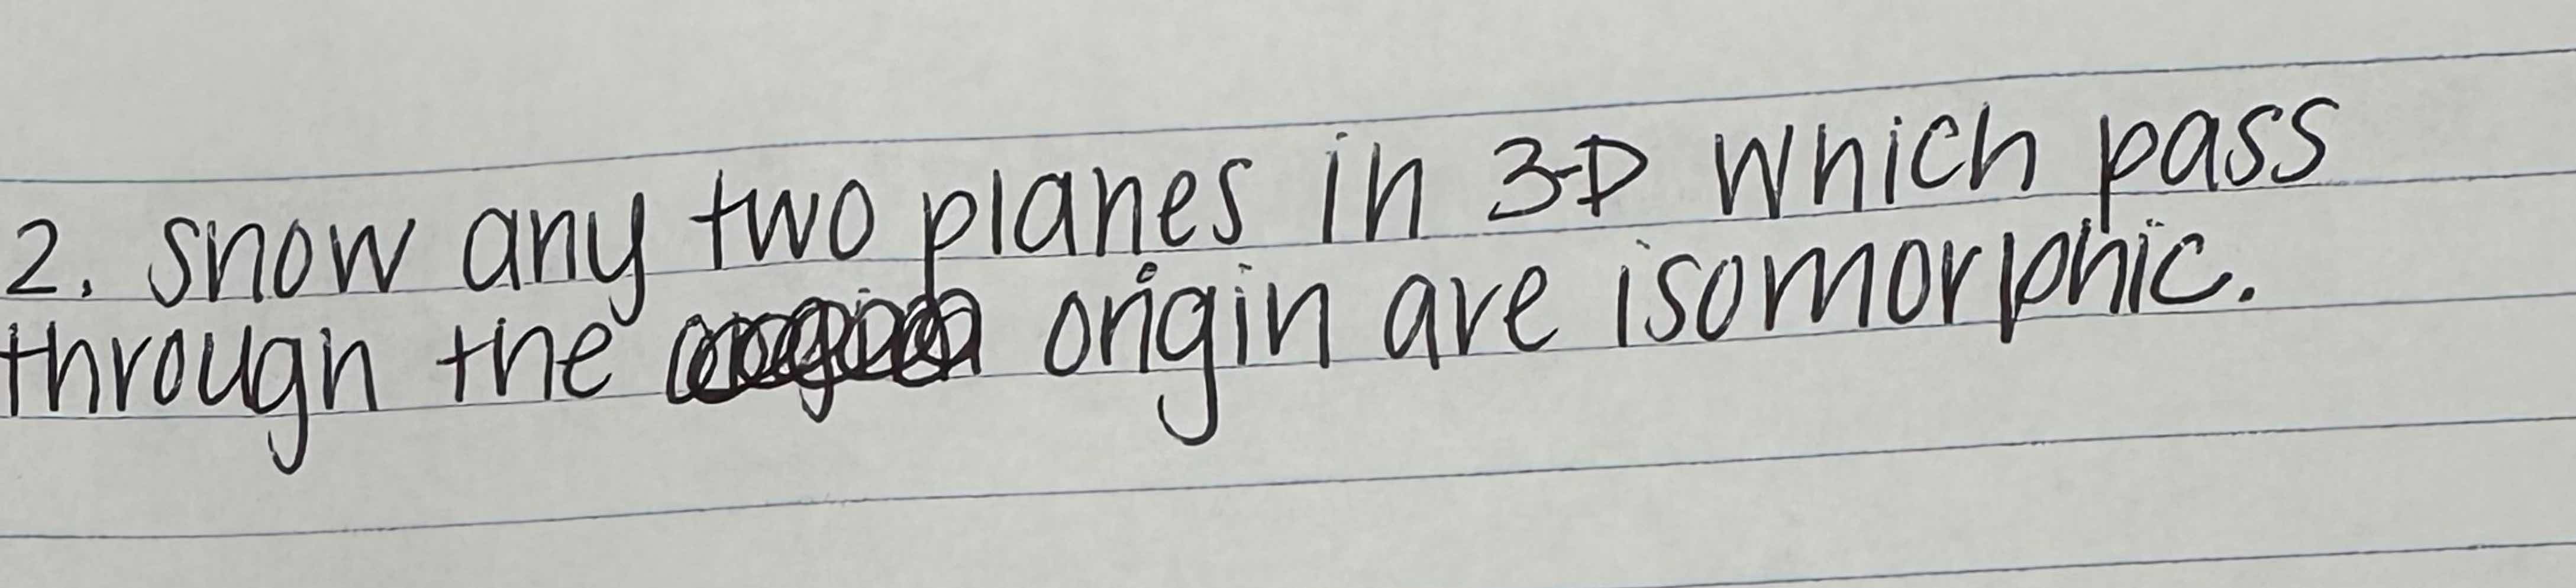 2. show any two planes in 3-D which pass
through the origin are isomorphic.